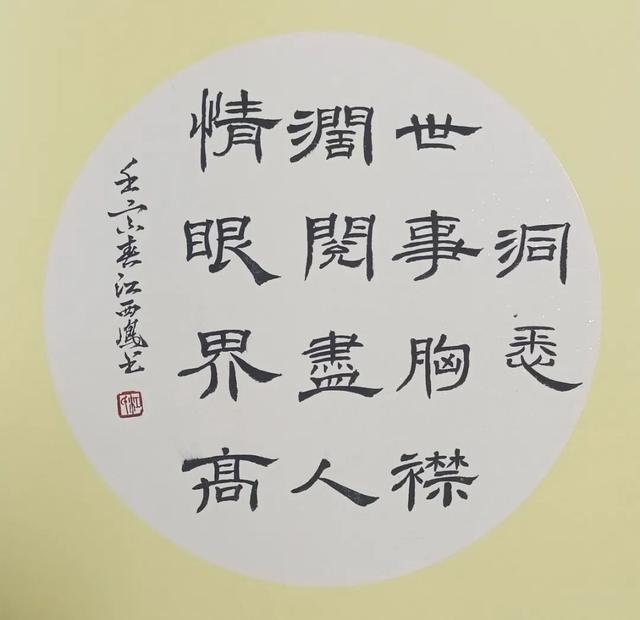 洞悉
世事胸襟
濶閱盡人
情眼界髙
壬寅春江西鳳书